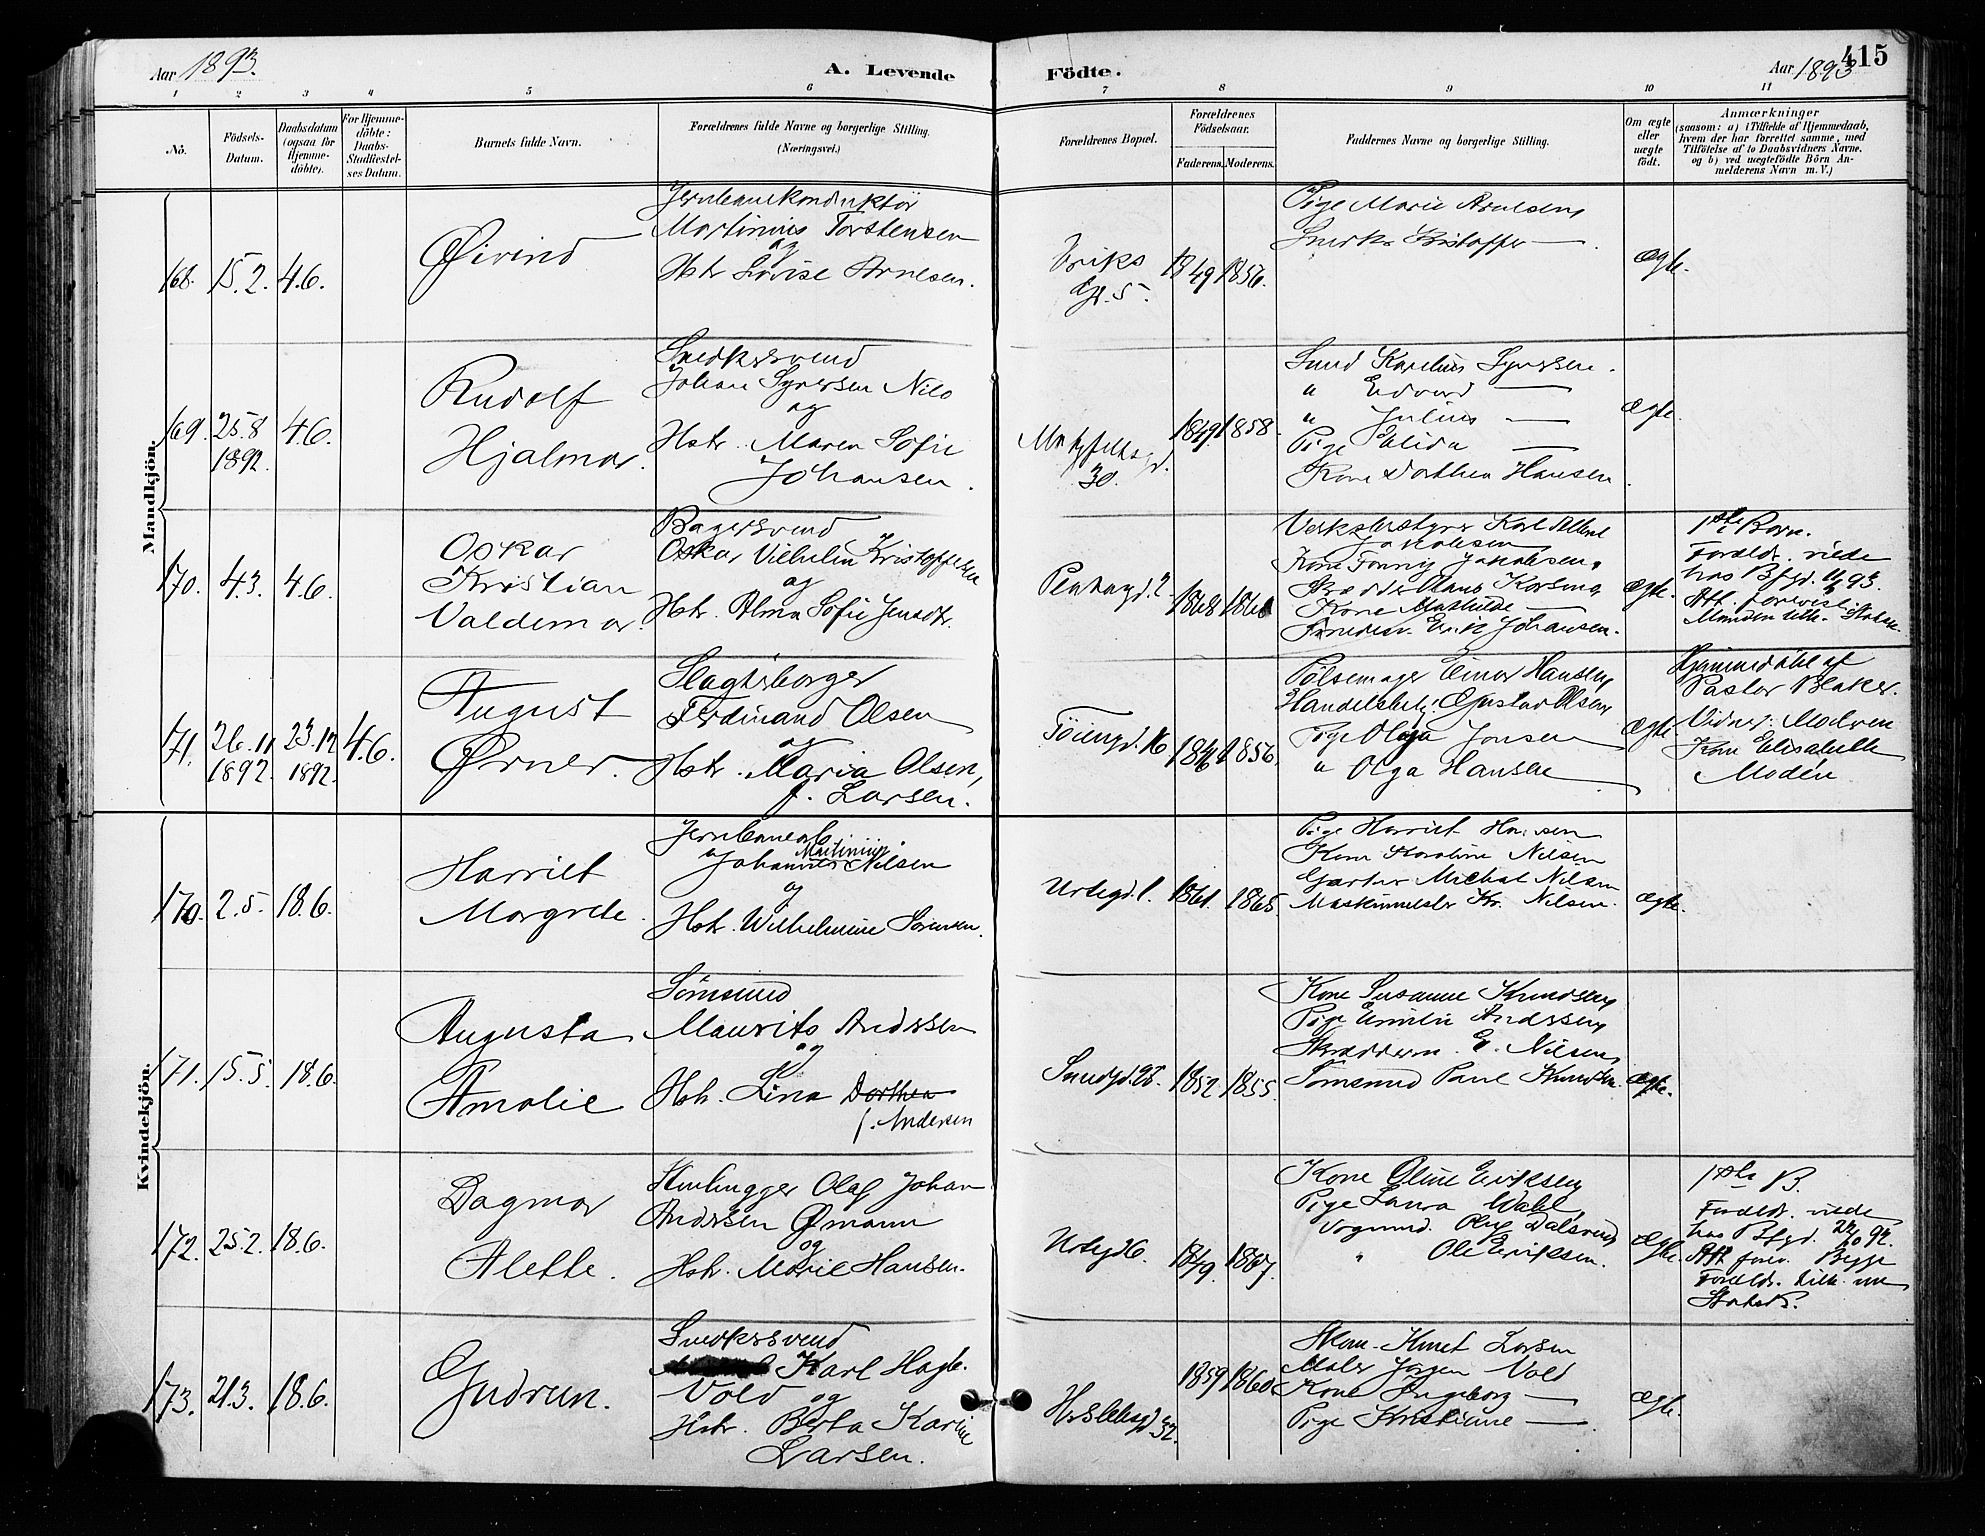 Aar 1893.
A. Levende Födte.
Aar 1893
415
1 2 3 4 5 6 7 8 9 10 11
No.
Födsels-Datum.
Daabsdatum (ogsaa for Hjemme-döbte).
For Hjemme-döbte: Daabs-Stadfæstel-ses Datum.
Barnets fulde Navn.
Forældrenes fulde Navne og borgerlige Stilling.
(Næringsvei.)
Forældrenes Bopæl.
Forældrenes Födselsaar.
Faderens. Moderens.
Faddernes Navne og borgerlige Stilling.
Om ægte eller uægte födt.
Anmærkninger
(saasom: a) i Tilfælde af Hjemmedaab, hvem der har forrettet samme, med Tilföielse af to Daabsvidners Navne. og b) ved uægtefödte Börn Anmelderens Navn m. V.)
Mandkjön.
168. 15.2. 4.6.
Øivind
Jernbanekonduktör
Martinius Torstensen
og
Hstr Lovise Arnesen.
Eriks
Gd. 5.
1849 1856.
Pige Marie Arnesen
Kristoffer —
ægte.
169. 25.8 1892. 4.6.
Rudolf
Hjalmar.
Snedkersvend
Johan Syversen Nilo
og
Hstr. Maren Sofie
Johansen.
30.
1849 1858.
Syversen.
" Edvard —
" Julius —
Pige Alida —
Kone Dorthea Hansen.
ægte.
170. 4.3. 4.6.
Oskar
Kristian
Valdemar.
Bagersvend
Oskar Vilhelm Kristoffersen
og
Hstr. Alma Sofie Jensdtr.
1868 1868
Karl Albert
Jakobsen
Kone Fanny Jakobsen.
Skrædder Hans Korsmo
Kone Mathilde —
Erik Johansen.
ægte.
1ste Barn.
Foreldr. viede
hos Bfgd. 11/2 93.
Att. forevist.
Manden tilh. Statsk.
171. 26.11 1892. 23.12 1892. 4.6.
August
Ørner.
Slagterborger
Ferdinand Olsen
og
Hstr. Maria Olsen,
f. Larsen.
Töiengd. 16
1846 1856.
Pölsemager Einar Hansen
Handelsbetj. Gustav Olsen
Pige Olga Jonsen
" Olga Hansen
ægte
Hjemmedöbt af
Pastor Blaker.
Vidner: Madam
Kone Elisabeth
Modén
Kvindekjön.
170. 2.5. 18.6.
Harriet
Margrete.
Jernbanearb.
Johannes Martinius Nilsen
og
Hstr. Wilhelmine Sörensen.
Urtegd. 1.
1861. 1865.
Pige Harriet Hansen
Kone Karoline Nilsen
Gartner Michal Nilsen
Maskinmester Kr. Nilsen.
ægte.
171. 15.5. 18.6.
Augusta
Amalie
Tömsmd
Maurits Andersen
og
Hstr. Lina Dorthea
f. Andersen
1852. 1855.
Kone Susanne Knudsen
Pige Emilie Andersen
Skrædderm. E. Nilsen
Tömsmd Paul Knudsen.
ægte.
172. 25.2. 18.6.
Dagmar
Alette.
Stenhugger Olaf Johan
Andersen Ømann
og
Hstr. Marie Hansen.
Urtegd 6.
1849. 1867.
Kone Oline Eriksen
Pige Laura Wahl
Vognmd. Oluf Dalsvend
" Ole Eriksen.
ægte.
1ste B.
Foreldr. viede
hos Bfgd. 22/10 92.
Att. forev. Begge
Foreldr. tilh. nu
Statsk.
173. 21.3. 18.6.
Gudrun.
Snedkersvend
Karl Hagb.
Vold og
Hstr. Berta Karine
Larsen.
Herslebsgd. 32.
1859 1860
Skom. Knut Larsen
Maler Jörgen Vold
Kone Ingeborg —
Pige Kristiane —
ægte.